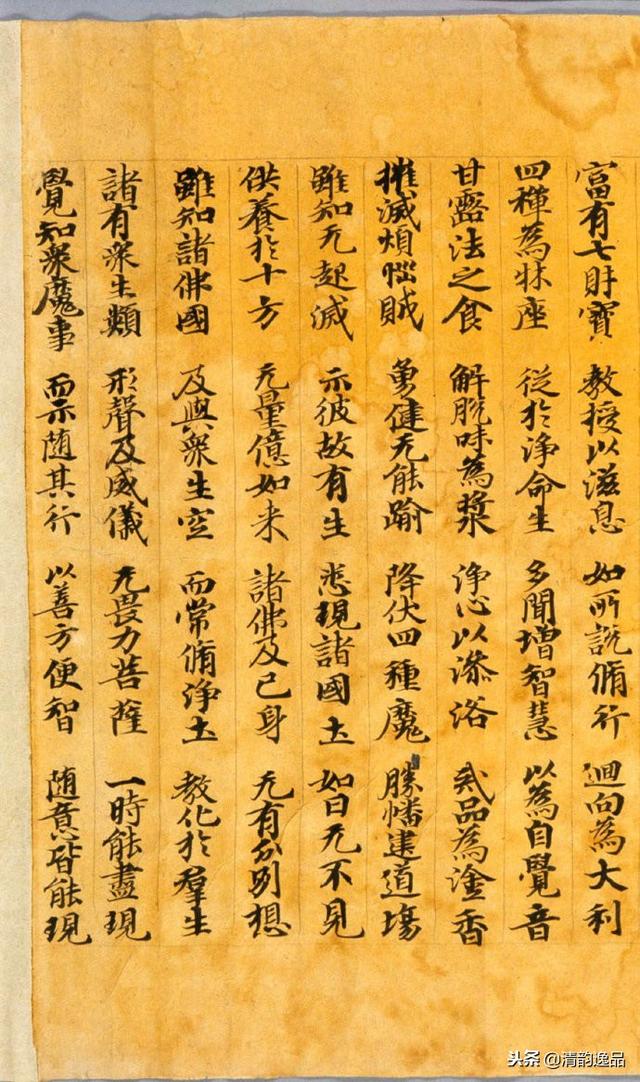 富有七財寶 教授以滋息 如所説脩行 迴向為大利
四禪為牀座 從於淨命生 多聞增智慧 以為自覺音
甘露法之食 解脱味為漿 淨心以澡浴 戒品為塗香
摧滅煩惱賊 勇健无能踰 降伏四種魔 勝幡建道場
雖知无起滅 示彼故有生 悉現諸國土 如日无不見
供養於十方 无量億如来 諸佛及己身 无有分別想
雖知諸佛國 及與衆生空 而常脩淨土 教化於羣生
諸有衆生類 形聲及威儀 无畏力菩薩 一時能盡現
覺知衆魔事 而示随其行 以善方便智 随意皆能現
头条 @清韵逸品